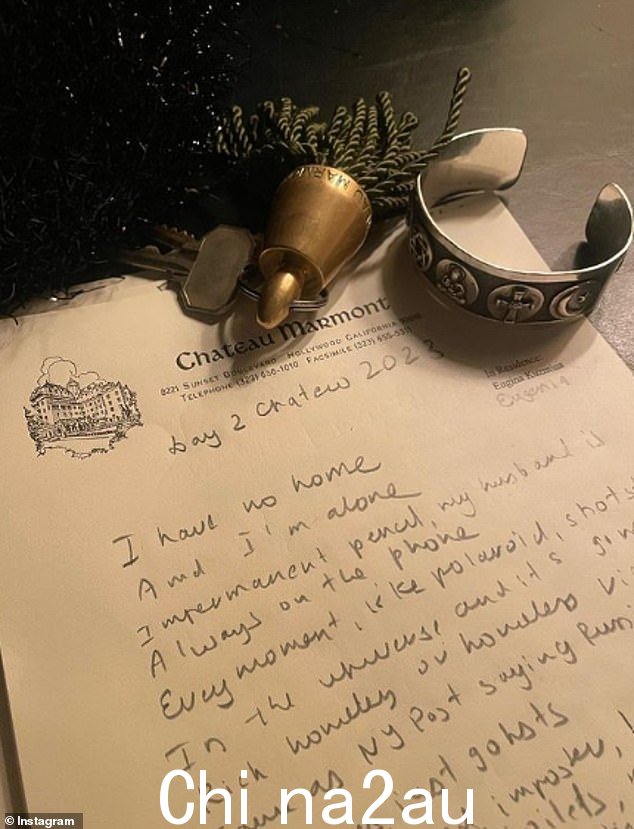 MARM
Chateau Marmont
8221 Sunset Boulevard Hollywood California
Telephone (323) 656-1010 Facsimile (323) 655-5311
In Residence:
Eugina Kuzmina
Eugenia
Day 2 Chateau 2023
I have no home
And I'm alone
Impermanent pencil, my husband is
Always on the phone
Every moment is like polaroid, shots
In the universe, and it's
Rich homeless or homeless
as NY Post saying
lost gohsts
imposter,
Chi na2au
© Instagram